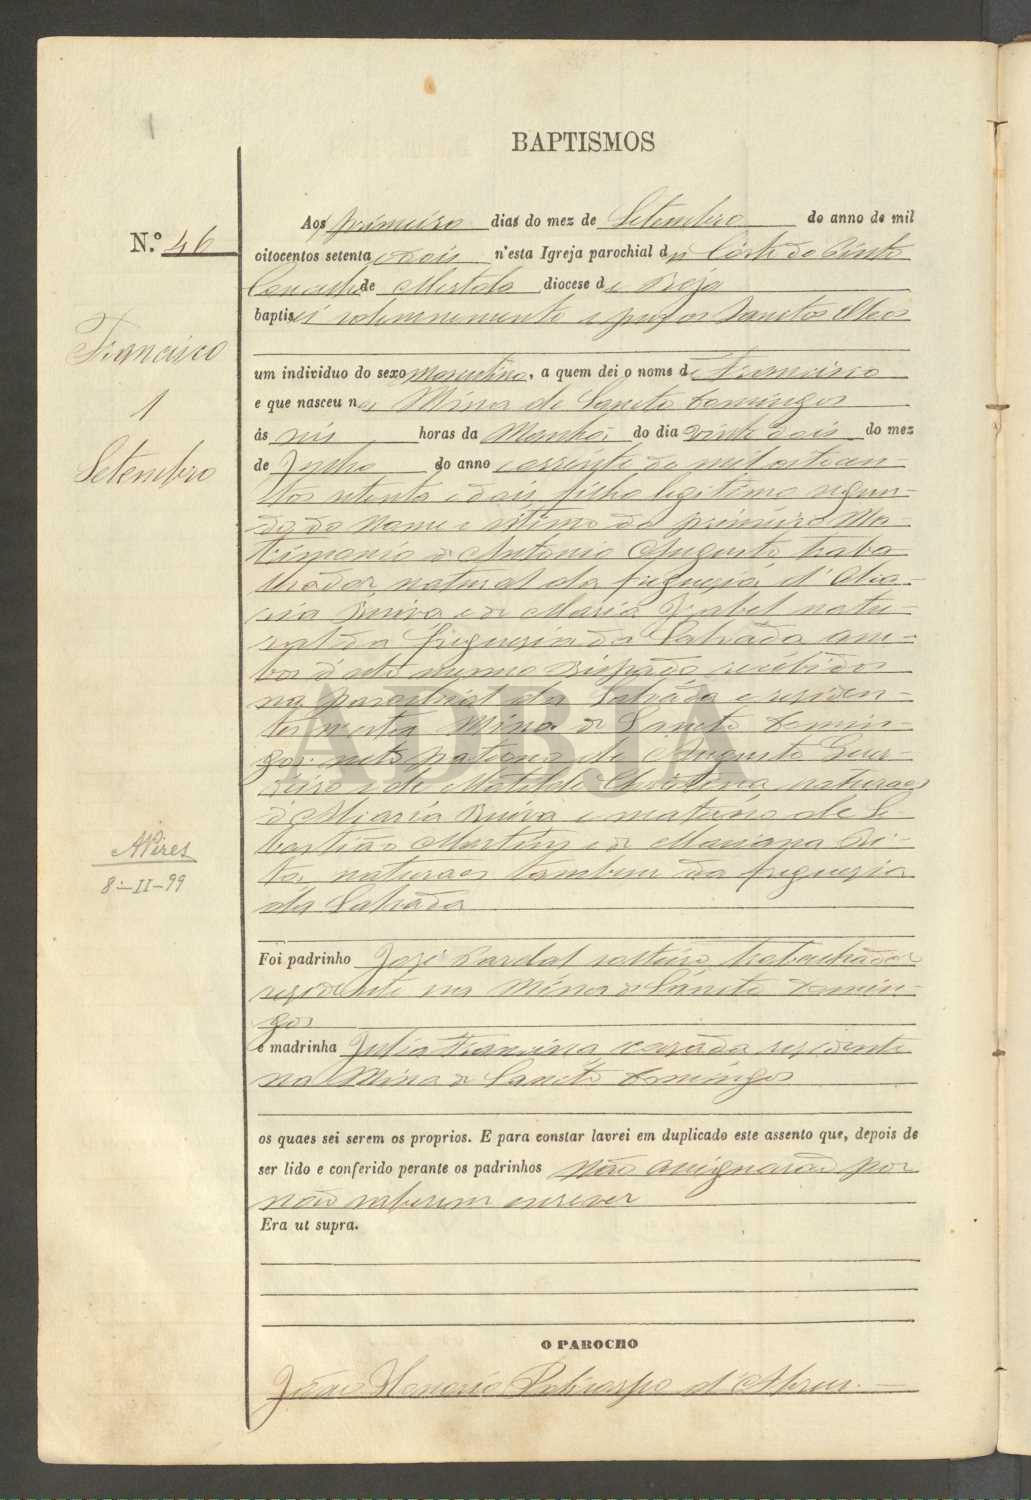 BAPTISMOS
N.º 46
Francisco
1
Setembro
APires
8-II-99
Aos primeiro dias do mez de Setembro do anno de mil
oitocentos setenta e dois n'esta Igreja parochial de Côrte do Pinto
Concelho de Mertola diocese de Beja
baptisei solemnemente e puz os Sanctos Oleos
um individuo do sexo Masculino, a quem dei o nome de Francisco
e que nasceu na Mina de Sancto Domingos
ás seis horas da Manhã do dia vinte dois do mez
de Junho do anno corrente de mil oitocen-
tos setenta e dois filho legitimo segun-
do do nome e do primeiro Ma-
trimonio de Antonio Augusto traba-
lhador natural da freguesia d'Alca-
ria Ruiva e de Maria Izabel natu-
ral da freguesia da Salvada am-
bos d'este mesmo Bispado recebidos
na parochial da Salvada e residen-
tes n'esta Mina de Sancto Domin-
gos neto paterno de Augusto Guer-
reiro e de Matilde naturaes
d'Alcaria Ruiva e materno de Se-
bastião Martins e de Mariana Ri-
ta naturaes tambem da freguesia
da Salvada
Foi padrinho José Pardal solteiro trabalhador
residente na Mina de Sancto Domin-
gos
e madrinha Julia casada residente
na Mina de Sancto Domingos
os quaes sei serem os proprios. E para constar lavrei em duplicado este assento que, depois de
ser lido e conferido perante os padrinhos não assignarão por
não saberem escrever
Era ut supra.
O PAROCHO
João Honorio Policarpo d'Abreu.
ADBJA